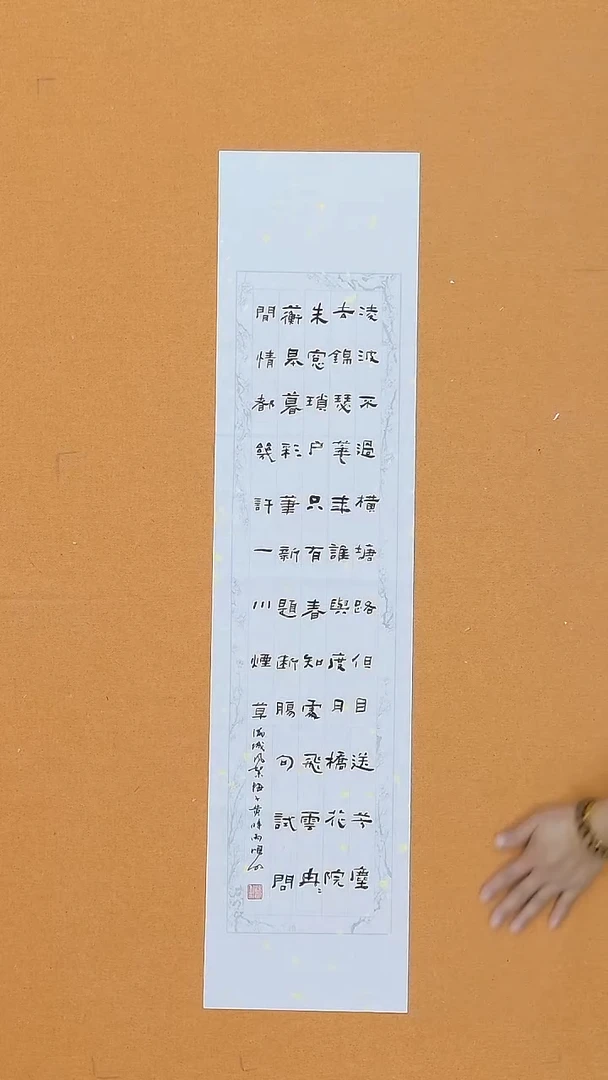 凌波不過橫塘路但目送芳塵
去錦瑟華年誰與度月橋花院
朱窓瑣户只有春知處飛雲冉〻
蘅皋暮彩筆新題斷腸句試問
閒情都幾許一川煙草滿城风絮梅子黄時雨